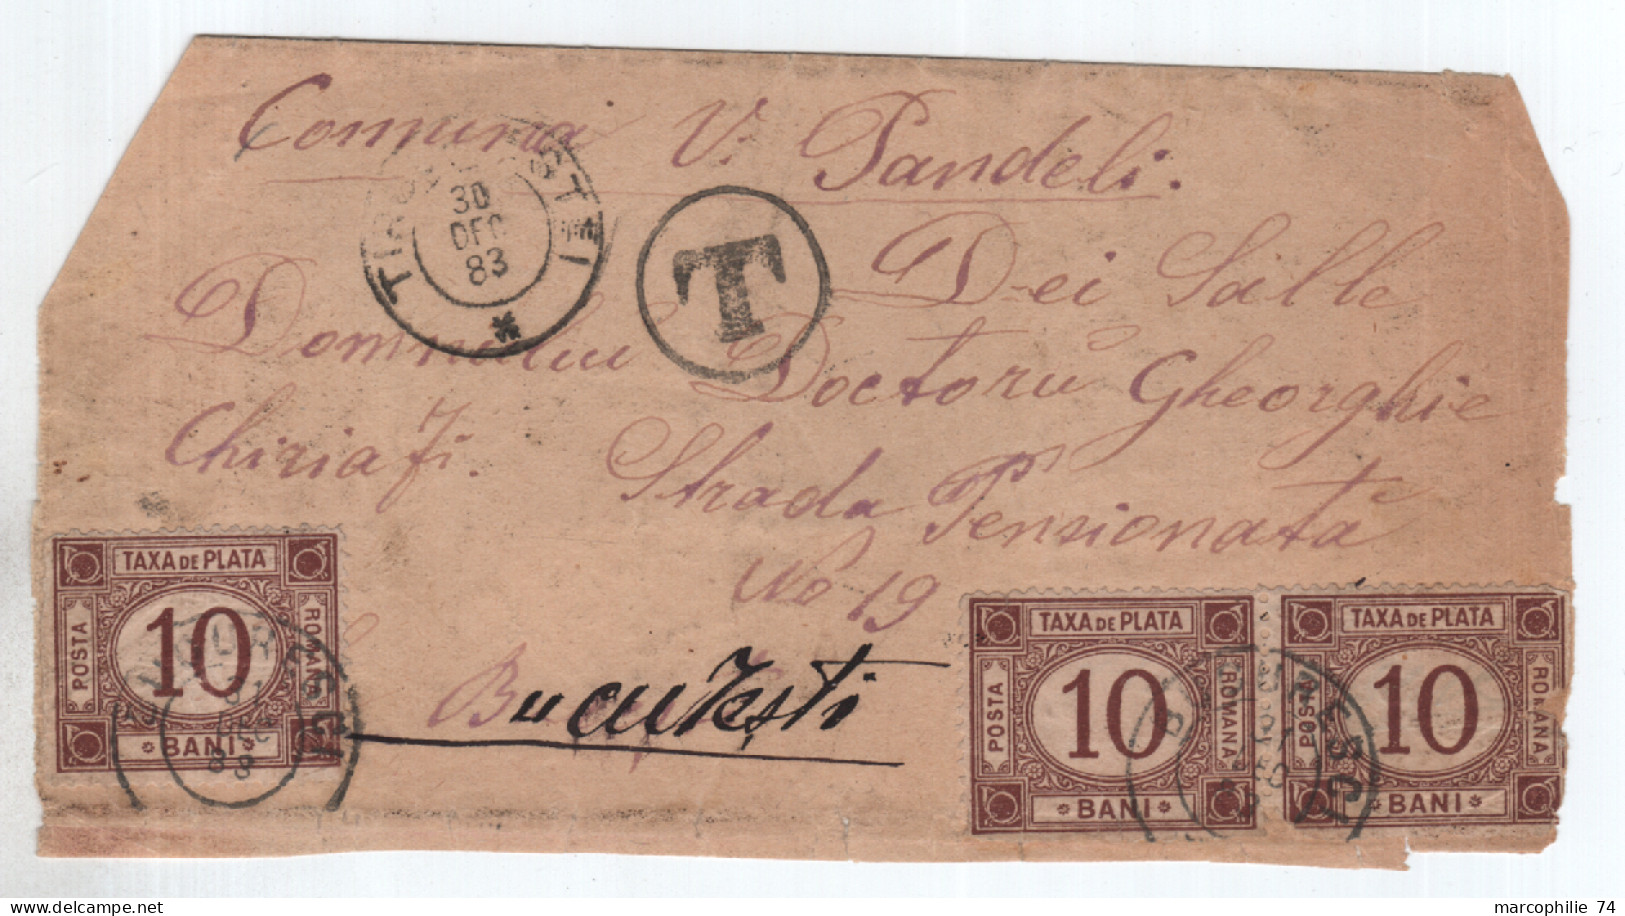 Comuna V. Pandeli.
30
DEC
83
T
Dei Salle
Domnului Doctoru Gheorghie
Chiriafi. Strada Pensionată
No 19
Bucuresti
TAXA DE PLATA
POSTA
10
ROMANA
BANI
BUCURESCI
31
DEC
83
TAXA DE PLATA
POSTA
10
ROMANA
BANI
TAXA DE PLATA
POSTA
10
ROMANA
BANI
BUCURESCI
marcophilie 74